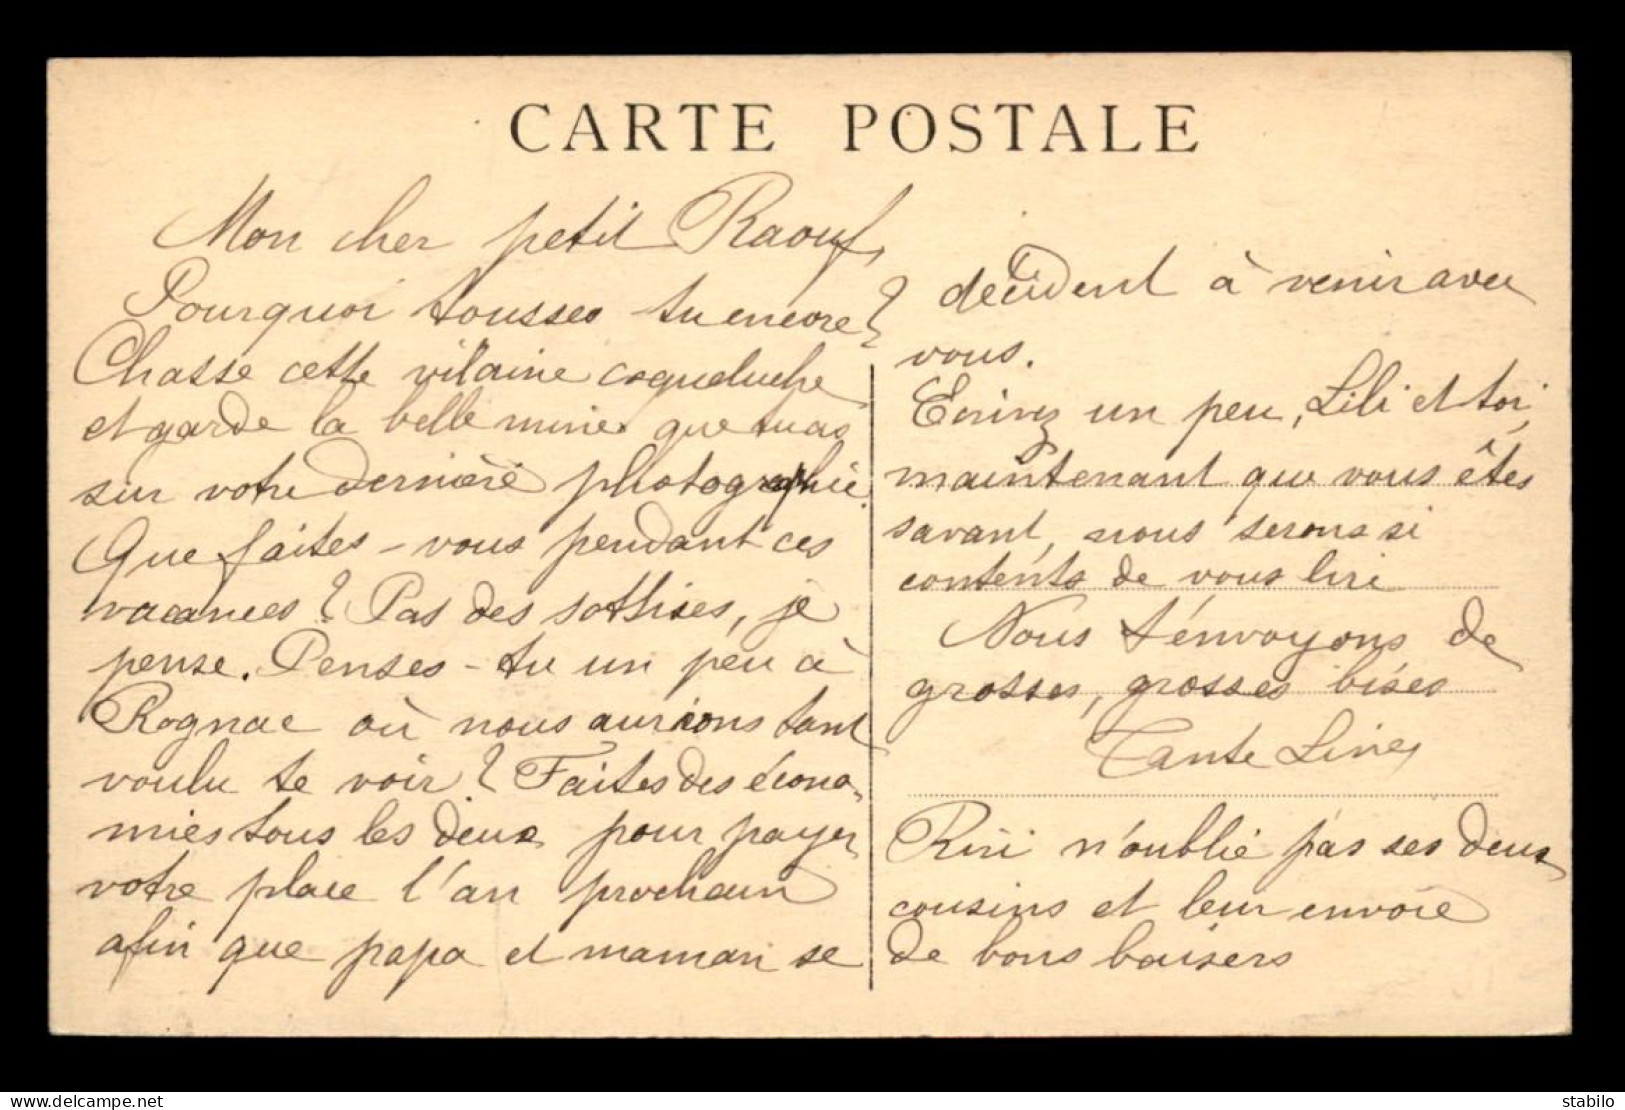 CARTE POSTALE
Mon cher petit Raouf,
Pourquoi tousses tu encore?
Chasse cette vilaine coqueluche
et garde la belle mine que tu as
sur votre dernière photographie.
Que faites-vous pendant ces
vacances? Pas des sottises, je
pense. Penses-tu un peu à
Rognac où nous aurions tant
voulu te voir? Faites des écono-
mies tous les deux pour payer
votre place l'an prochain
afin que papa et maman se
décident à venir avec
vous.
Ecrivez un peu, Lili et toi,
maintenant que vous êtes
savant, nous serons si
contents de vous lire
Nous t'envoyons de
grosses, grosses bises
Tante Line
Riri n'oublie pas ses deux
cousins et leur envoie
de bons baisers
delcampe.net
stabilo